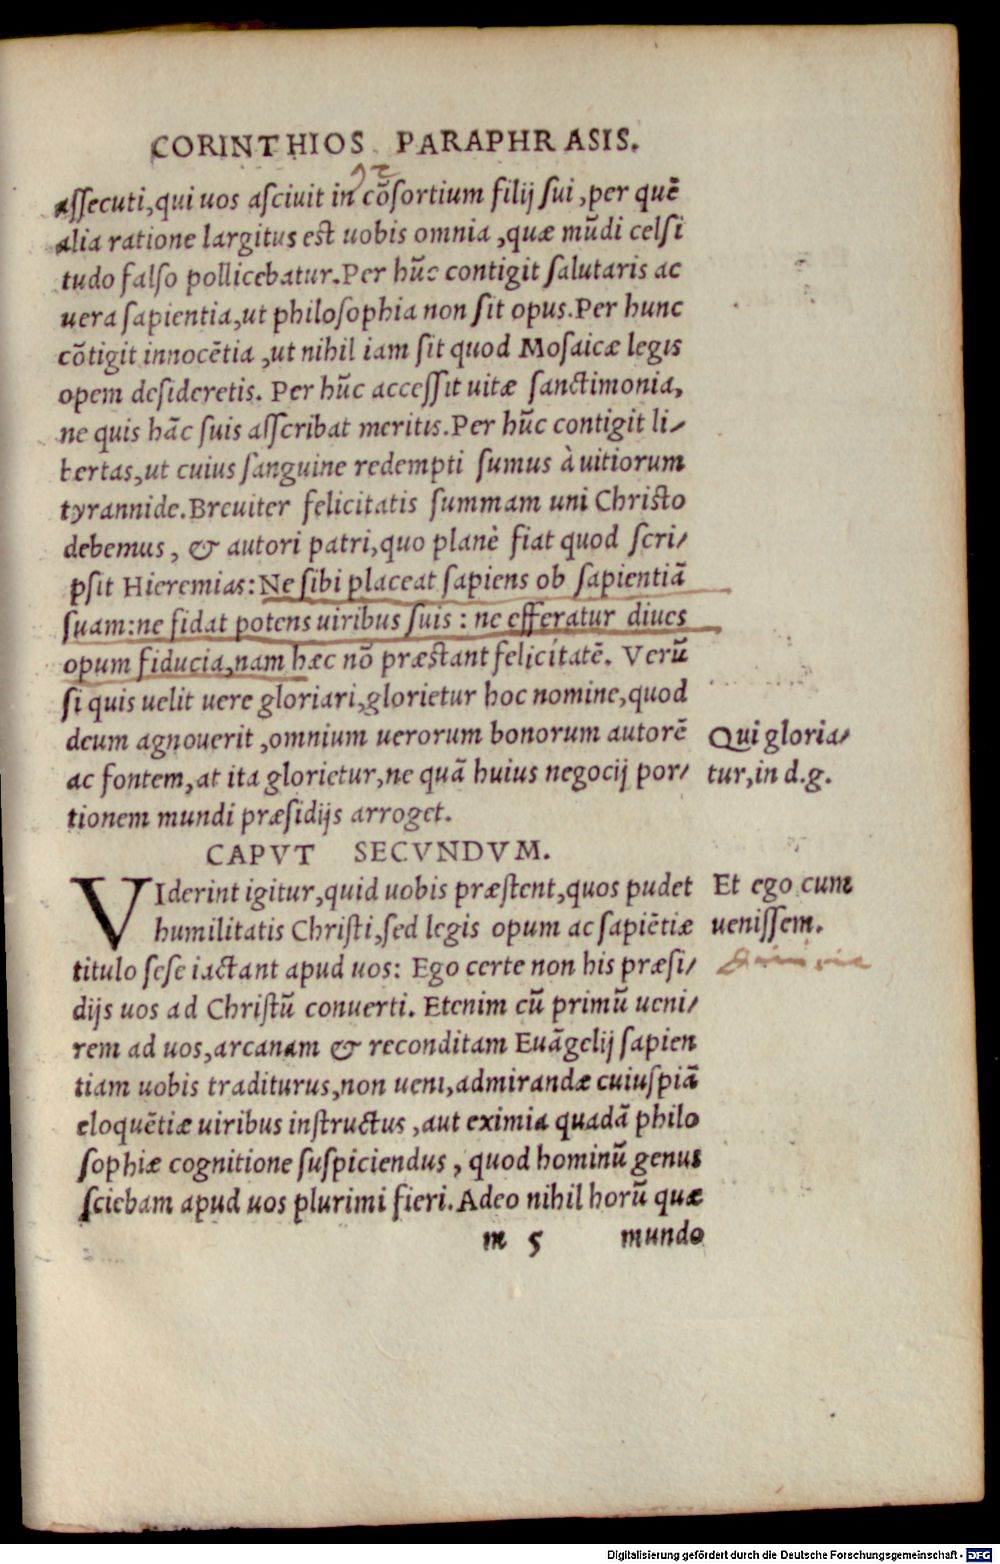 CORINTHIOS PARAPHRASIS.
assecuti, qui uos asciuit in cõsortium filij sui, per quẽ
alia ratione largitus est uobis omnia, quæ mũdi celsi
tudo falso pollicebatur. Per hũc contigit salutaris ac
uera sapientia, ut philosophia non sit opus. Per hunc
cõtigit innocẽtia, ut nihil iam sit quod Mosaicæ legis
opem desideretis. Per hũc accessit uitæ sanctimonia,
ne quis hãc suis asscribat meritis. Per hũc contigit li-
bertas, ut cuius sanguine redempti sumus à uitiorum
tyrannide. Breuiter felicitatis summam uni Christo
debemus, & autori patri, quo planè fiat quod scri-
psit Hieremias: Ne sibi placeat sapiens ob sapientiã
suam: ne fidat potens uiribus suis: ne efferatur diues
opum fiducia, nam hæc nõ præstant felicitatẽ. Verũ
si quis uelit uere gloriari, glorietur hoc nomine, quod
deum agnouerit, omnium uerorum bonorum autorẽ
ac fontem, at ita glorietur, ne quã huius negocij por-
tionem mundi præsidijs arroget.
Qui gloria-
tur, in d.g.
CAPVT SECVNDVM.
VIderint igitur, quid uobis præstent, quos pudet
humilitatis Christi, sed legis opum ac sapiẽtiæ
titulo sese iactant apud uos: Ego certe non his præsi-
dijs uos ad Christũ conuerti. Etenim cũ primũ ueni-
rem ad uos, arcanam & reconditam Euãgelij sapien
tiam uobis traditurus, non ueni, admirandæ cuiuspiã
eloquẽtiæ uiribus instructus, aut eximia quadã philo
sophiæ cognitione suspiciendus, quod hominũ genus
sciebam apud uos plurimi fieri. Adeo nihil horũ quæ
Et ego cum
uenissem.
m 5 mundo
Digitalisierung gefördert durch die Deutsche Forschungsgemeinschaft - DFG